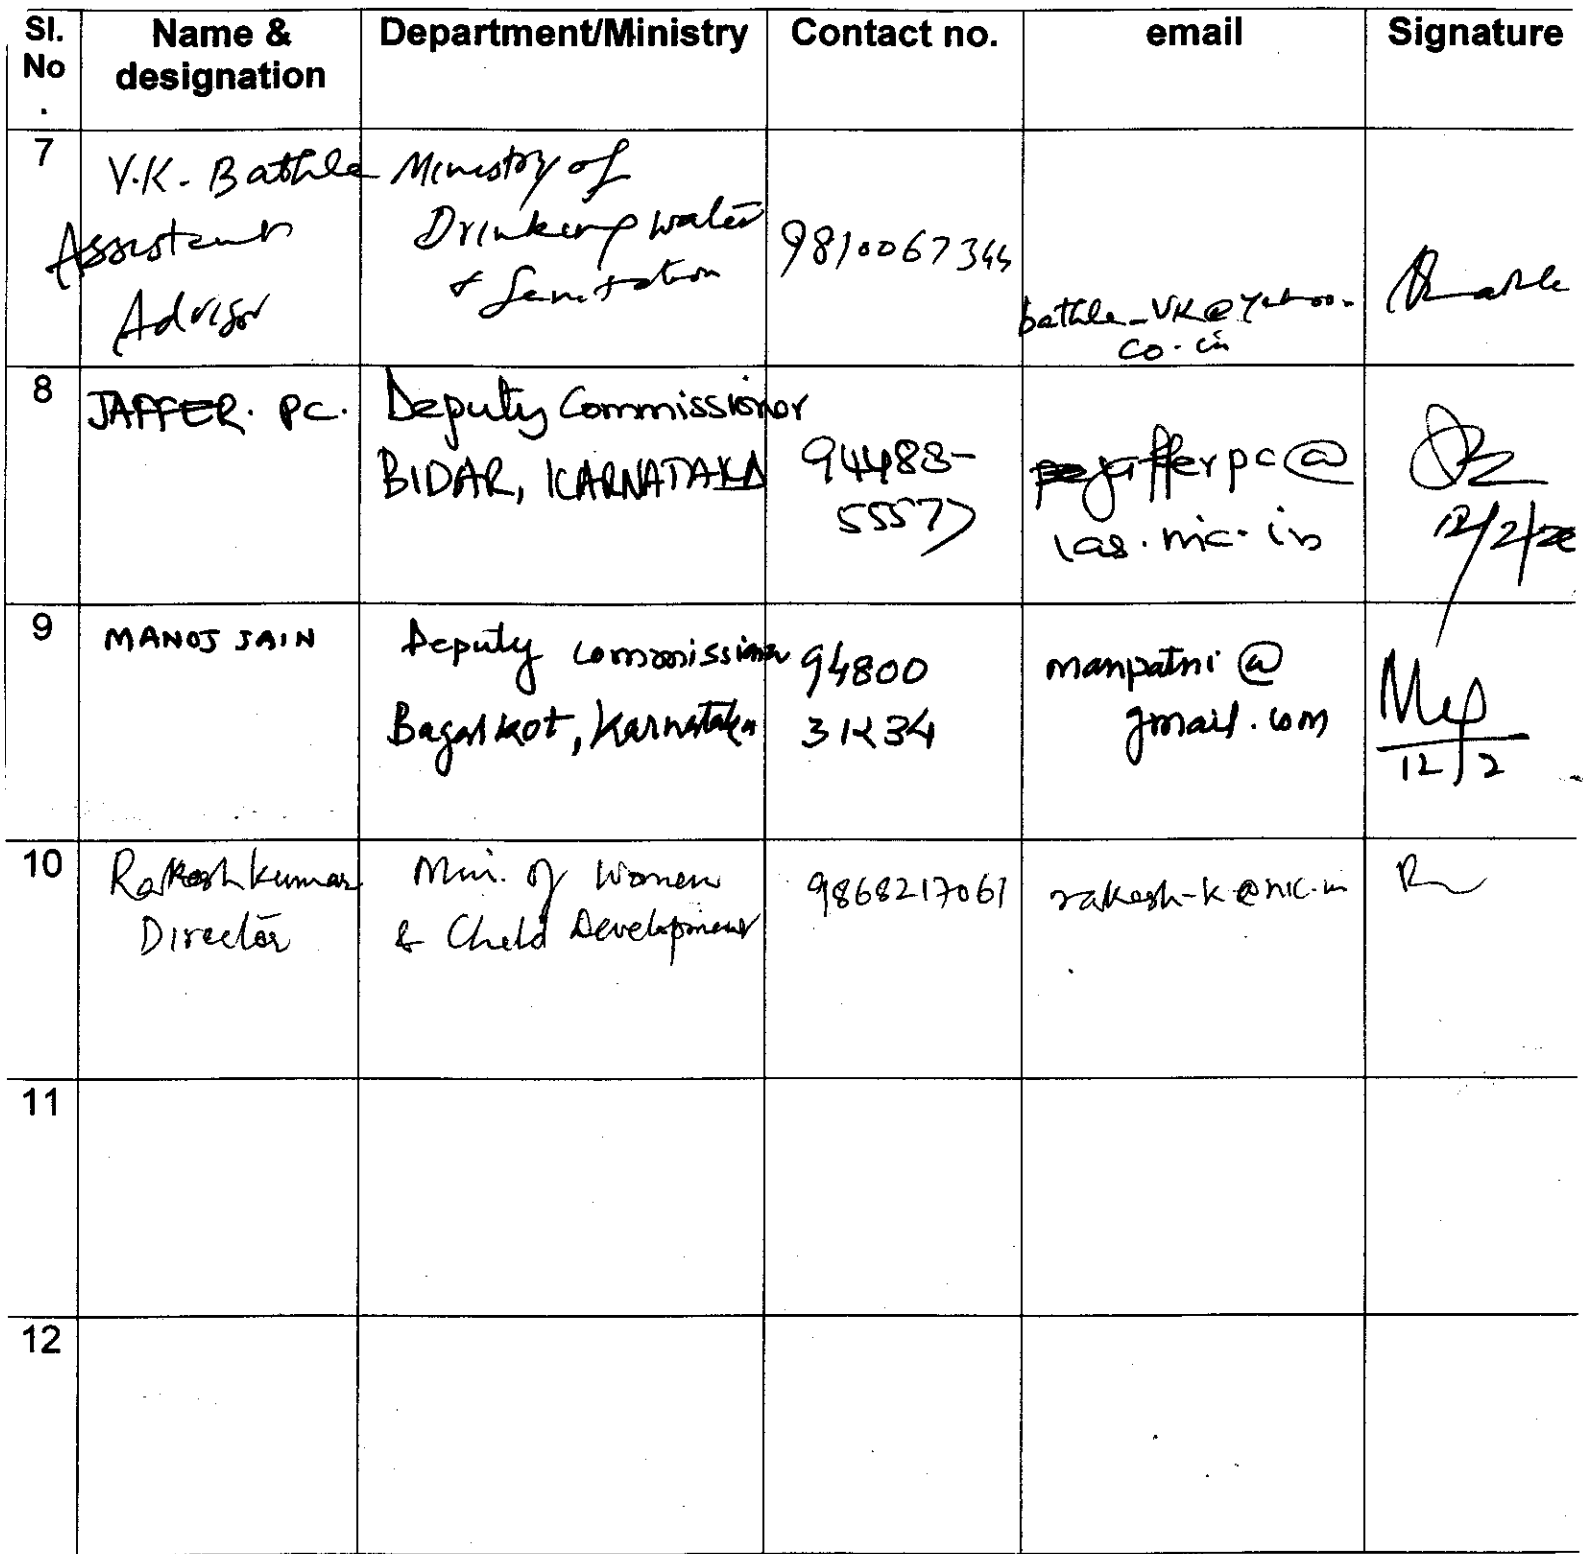 Sl. No . Name & designation Department/Ministry Contact no. email Signature
7
V.K. Bathla
Assistant
Advisor
Ministry of
Drinking water
& Sanitation
9810067344
bathla_VK@yahoo.
co.in
8
JAFFER. PC.
Deputy Commissioner
BIDAR, KARNATAKA
94488-
55577
jafferpc@
ias.nic.in
12/2/
9
MANOJ JAIN
Deputy Commissioner
Bagalkot, Karnataka
94800
31234
manpatni@
gmail.com
12/2
10
Rakesh Kumar
Director
Min. of Women
& Child Development
9868217061
rakesh-k@nic.in
11
12